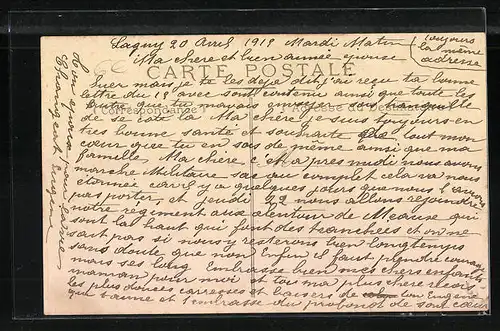 Lagny 20 Avril 1919 Mardi Matin
(toujours
la même
adresse
Ma chere et bien aimée epouse
CARTE POSTALE
Hier mais je te les deja dit j'ai reçu ta bonne
lettre du 17 avec son contenu ainsi que toute les
autre que tu mavais envoyé
Correspondance
de se coté la Ma chère je suis toujours en
très bonne santé et souhaite de tout mon
cœur que tu en sois de même ainsi que ma
famille, Ma chere c'et apres midi nous avons
marche Militaire sac au complet cela va nous
etonnée car il y a quelques jours que nous l'avons
pas porter, et jeudi 22 nous allons rejoindre
notre regiment aux alentour de Meaux qui
sont la haut qui font des tranchées et on ne
sait pas si nous y resterons bien longtemps
sans doute que non Enfin il faut prendre courage
mais ses long Embrasse bien mes chers enfants
maman pour moi et toi ma plus chere recois
les plus douces carresses et baisers de ton Eugène
qui t'aime et t'embrasse du profond de son cœur
ton epoux pour la vie
Eugène